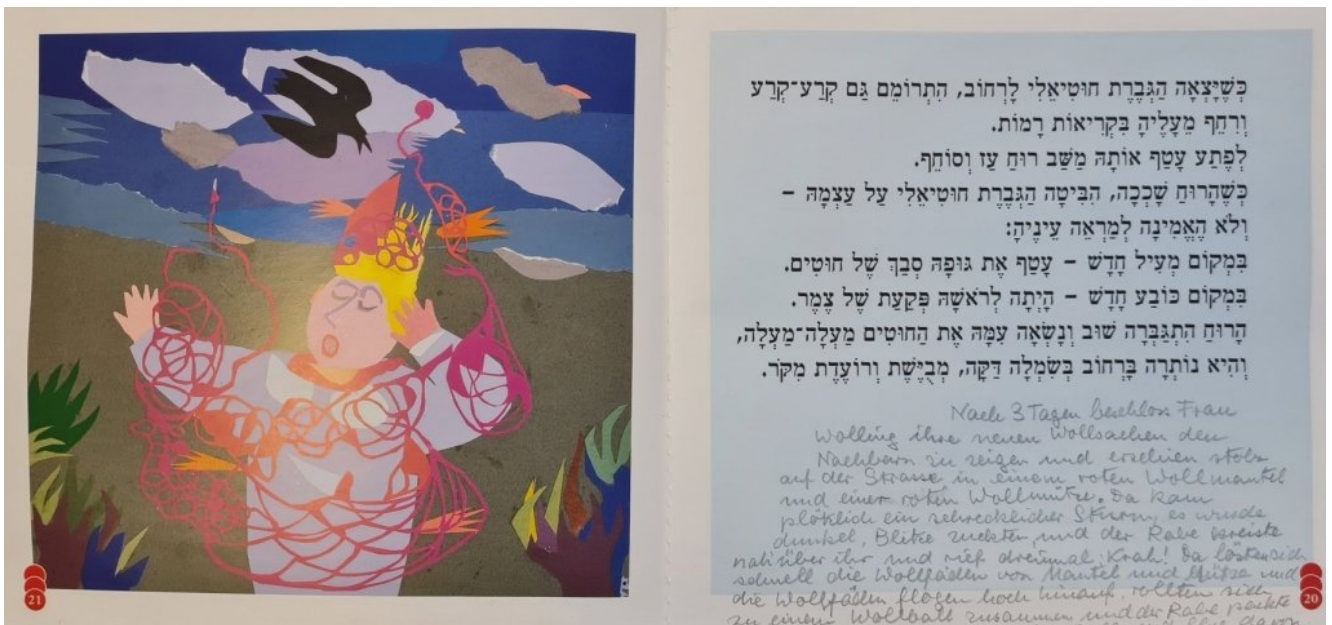 כְּשֶׁיָּצְאָה הַגְּבֶרֶת חוּטִיאֵלִי לָרְחוֹב, הִתְרוֹמֵם גַּם קְרַע־קְרַע
וְרִחֵף מֵעָלֶיהָ בִּקְרִיאוֹת רָמוֹת.
לְפֶתַע עָטַף אוֹתָהּ מַשַּׁב רוּחַ עַז וְסוֹחֵף.
כְּשֶׁהָרוּחַ שָׁכְכָה, הִבִּיטָה הַגְּבֶרֶת חוּטִיאֵלִי עַל עַצְמָהּ –
וְלֹא הֶאֱמִינָה לְמַרְאֵה עֵינֶיהָ:
בִּמְקוֹם מְעִיל חָדָשׁ – עָטַף אֶת גּוּפָהּ סְבַךְ שֶׁל חוּטִים.
בִּמְקוֹם כּוֹבַע חָדָשׁ – הָיְתָה לְרֹאשָׁהּ פְּקַעַת שֶׁל צֶמֶר.
הָרוּחַ הִתְגַּבְּרָה שׁוּב וְנָשְׂאָה עִמָּהּ אֶת הַחוּטִים מַעְלָה־מַעְלָה,
וְהִיא נוֹתְרָה בָּרְחוֹב בְּשִׂמְלָה דַּקָּה, מְבֻיֶּשֶׁת וְרוֹעֶדֶת מִקֹּר.
Nach 3 Tagen beschloss Frau
Wolling ihre neuen Wollsachen den
Nachbarn zu zeigen und erschien stolz
auf der Strasse in einem roten Wollmantel
und einer roten Wollmütze. Da kam
plötzlich ein schrecklicher Sturm, es wurde
dunkel, Blitze zuckten und der Rabe kreiste
nah über ihr und rief dreimal: Krah! Da lösten sich
schnell die Wollfäden von Mantel und Mütze und
die Wollfäden flogen hoch hinauf, rollten sich
zu einem Wollball zusammen und der Rabe packte
20
21